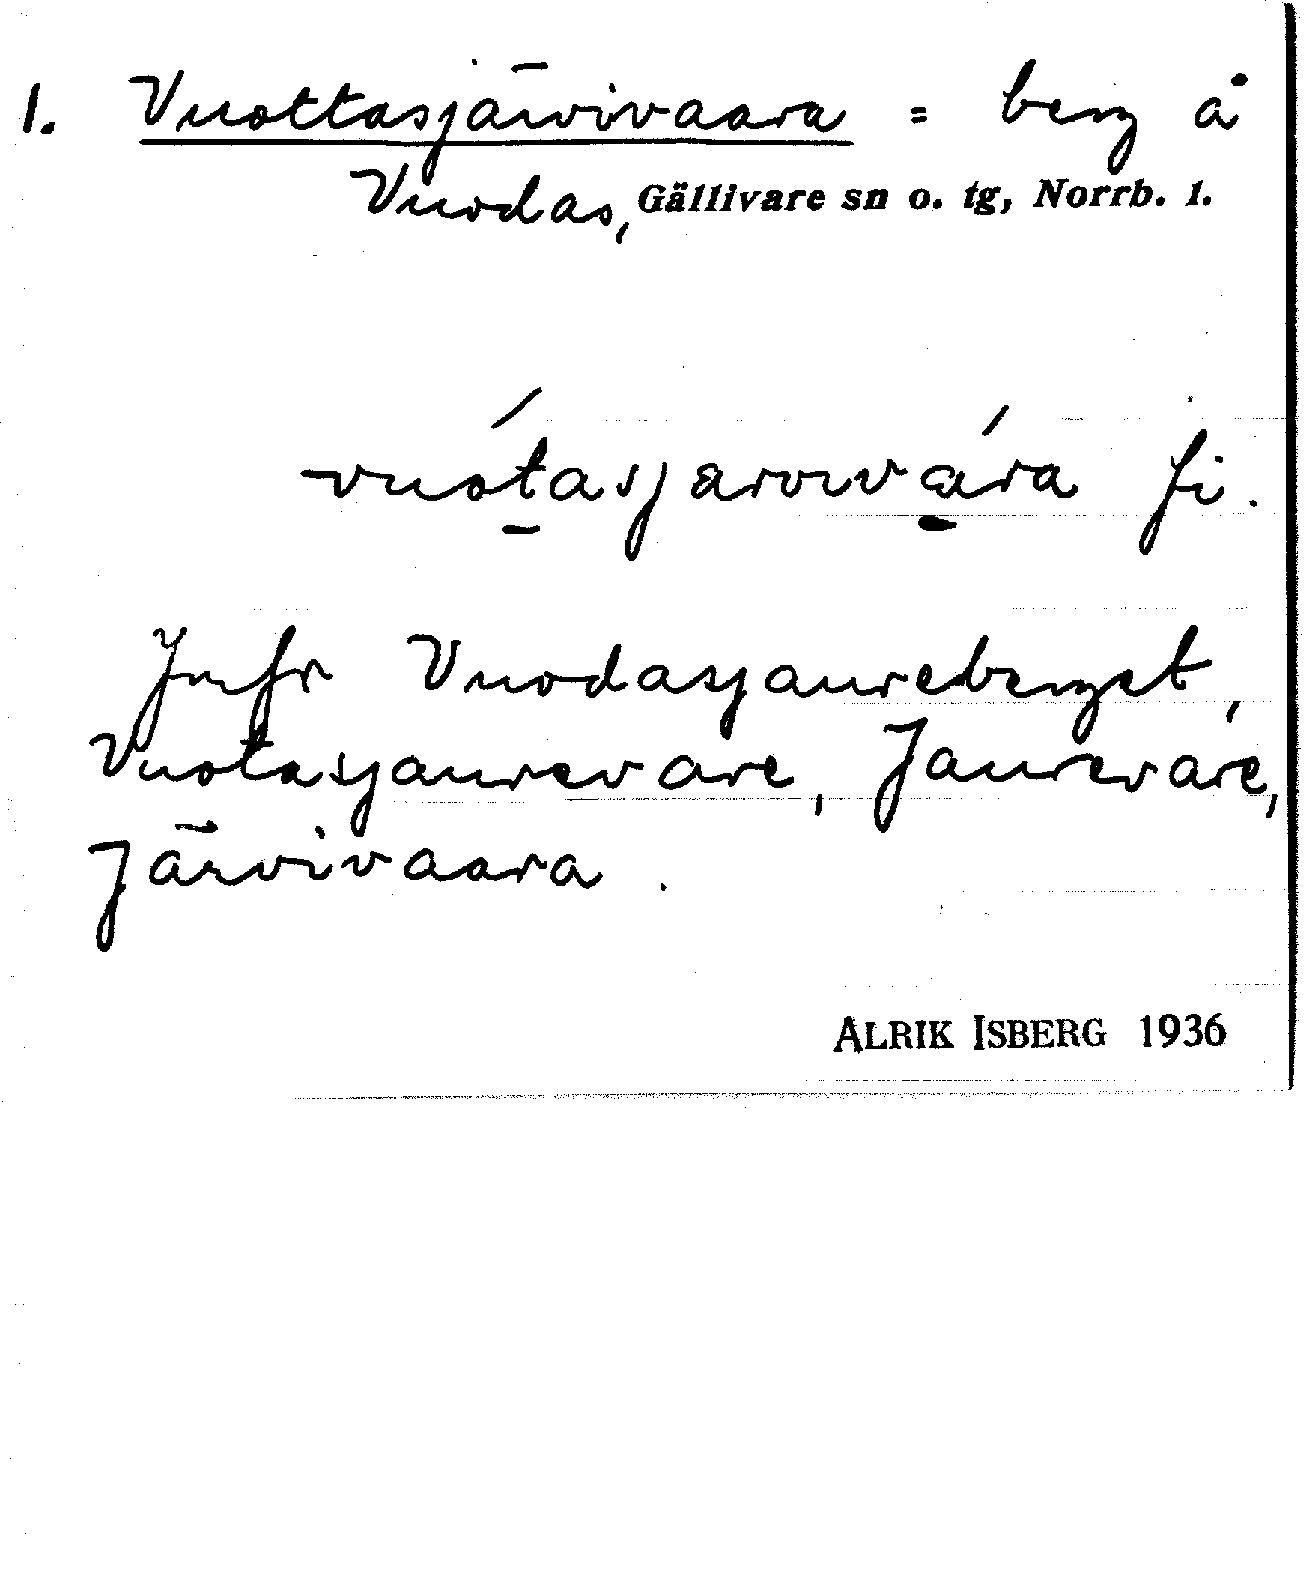 1. Vuottasjärvivaara = berg å
Vuodas, Gällivare sn o. tg, Norrb. l.
vuo̱tasjærvivá̱ra fi.
Jmfr Vuodasjaureberget,
Vuotasjaurevare, Jaurevare,
Järvivaara.
ALRIK ISBERG 1936